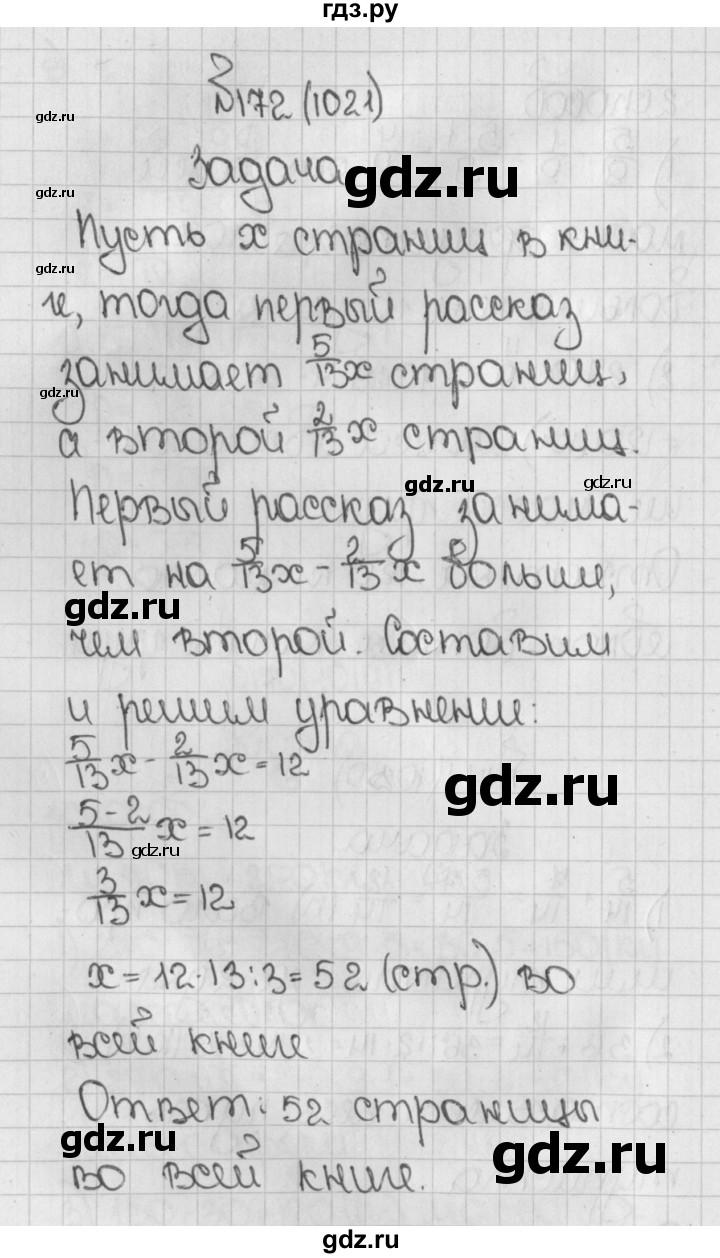 гдз.ру
№172 (1021)
gdz.ru
Задача
gdz.ru
gdz.ru
Пусть x страниц в кни-
gdz.ru
ге, тогда первый рассказ
занимает 5/13 x страниц,
gdz.ru
а второй 2/13 x страниц.
gdz.ru
gdz.ru
Первый рассказ занима-
ет на 5/13 x - 2/13 x больше,
gdz.ru
чем второй. Составим
и решим уравнение:
5/13 x - 2/13 x = 12
gdz.ru
(5-2)/13 x = 12
gdz.ru
3/13 x = 12
x = 12·13:3 = 52 (стр.) во
всей книге
Ответ: 52 страницы
gdz.ru
gdz.ru
во всей книге.
gdz.ru